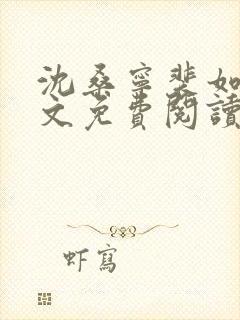 沈桑寧裴如
文免費閱讀
虾寫